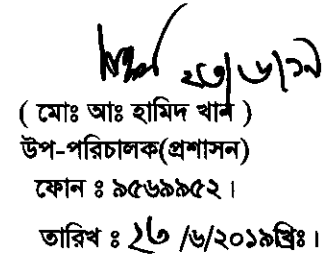 ২৩/৬/১৯
( মোঃ আঃ হামিদ খান )
উপ-পরিচালক(প্রশাসন)
ফোন ঃ ৯৫৬৯৯৫২।
তারিখ ঃ ২৩ /৬/২০১৯খ্রিঃ।